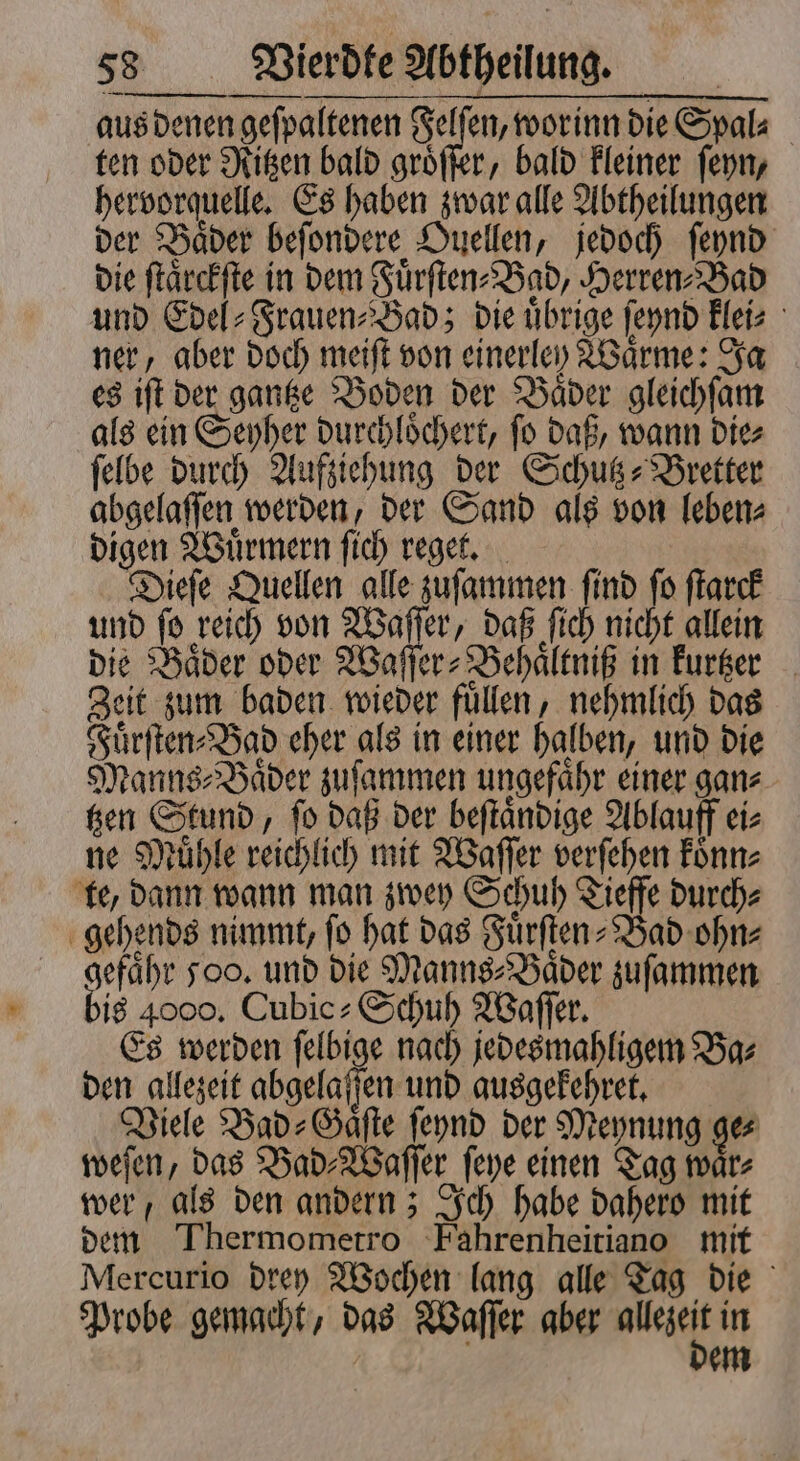 58 Vierdte Abtheilung.
aus denen geſpaltenen Felſen, worinn die Spal⸗
ten oder Ritzen bald groͤſſer, bald kleiner ſeyn,
hervorquelle. Es haben zwar alle Abtheilungen
der Baͤder beſondere Quellen, jedoch ſeynd
die ſtaͤrckſte in dem Fuͤrſten⸗Bad, Herren⸗Bad
und Edel⸗Frauen⸗Bad; die uͤbrige ſeynd klei⸗
ner, aber doch meiſt von einerley Waͤrme: Ja
es iſt der gantze Boden der Baͤder gleichſam
als ein Seyher durchloͤchert, ſo daß, wann die⸗
ſelbe durch Aufziehung der Schutz⸗Bretter
abgelaſſen werden, der Sand als von leben⸗
digen Wuͤrmern ſich reget.
Dieſe Quellen alle zuſammen ſind ſo ſtarck
und ſo reich von Waſſer, daß ſich nicht allein
die Baͤder oder Waſſer⸗Behaͤltniß in kurtzer
Zeit zum baden wieder fuͤllen, nehmlich das
Fuͤrſten⸗Bad eher als in einer halben, und die
Manns⸗Baͤder zuſammen ungefaͤhr einer gan⸗
tzen Stund, ſo daß der beſtaͤndige Ablauff ei⸗
ne Muͤhle reichlich mit Waſſer verſehen koͤnn⸗
te, dann wann man zwey Schuh Tieffe durch⸗
gehends nimmt, ſo hat das Fuͤrſten⸗Bad ohn⸗
gefaͤhr 500. und die Manns⸗Baͤder zuſammen
bis 4000. Cubic⸗Schuh Waſſer.
Es werden ſelbige nach jedesmahligem Ba⸗
den allezeit abgelaſſen und ausgekehret.
Viele Bad⸗Gaͤſte ſeynd der Meynung ge⸗
weſen, das Bad⸗Waſſer ſeye einen Tag waͤr⸗
wer, als den andern; Ich habe dahero mit
dem Thermometro Fahrenheitiano mit
Mercurio drey Wochen lang alle Tag die
Probe gemacht, das Waſſer aber allezeit in
dem